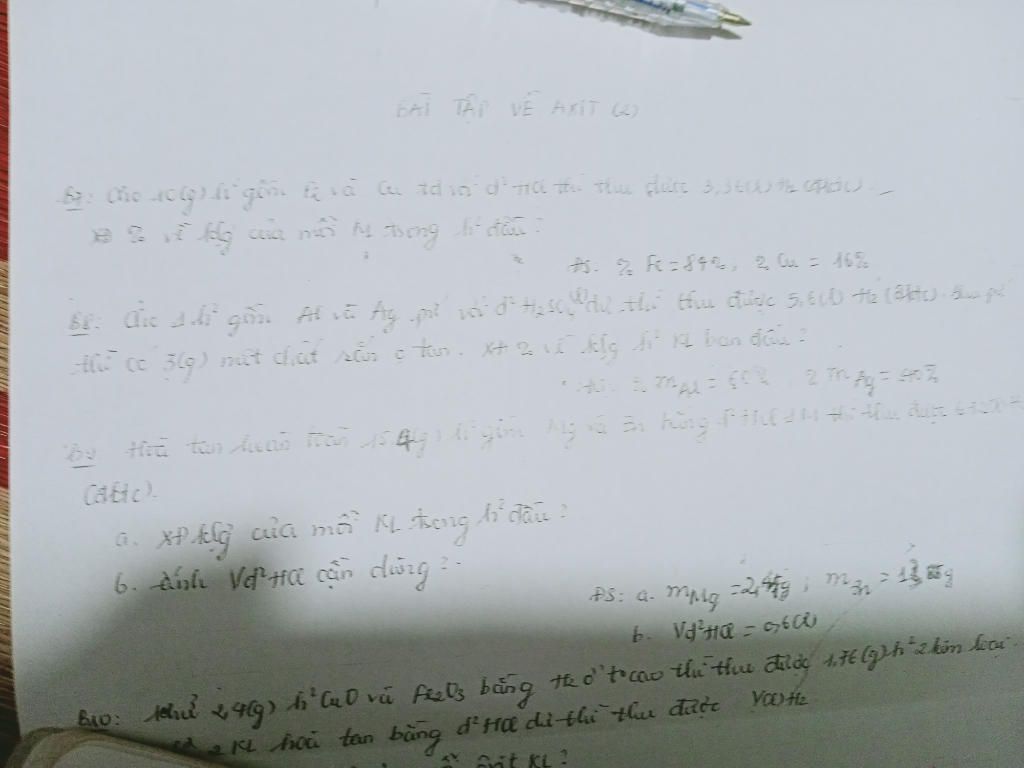 BÀI TẬP VỀ AXIT (2)
B7: Cho 10(g) h² gồm Fe và Cu td với d² HCl thì thu được 3,36(l) H2 (đktc).
XĐ % về klg của mỗi KL trong h² đầu?
ĐS: % Fe = 84%, % Cu = 16%
B8: Cho 1 h² gồm Al và Ag pư với d² H2SO4(l) dư thì thu được 5,6(l) H2 (đktc). Sau pư
thì có 3(g) một chất rắn ç tan. XĐ % về klg h² KL ban đầu?
ĐS: % mAl = 60%, % mAg = 40%
B9: Hoà tan hoàn toàn 15,4(g) h² gồm Mg và Zn bằng d² HCl 1M thì thu được 6,72(l) H2
(đktc).
a. XĐ klg của mỗi KL trong h² đầu?
b. Tính Vd² HCl cần dùng?
ĐS: a. mMg = 2,4g; mZn = 13g
b. Vd² HCl = 0,6(l)
B10: Khử 2,4(g) h² CuO và Fe2O3 bằng H2 ở t° cao thì thu được 1,76(g) h² 2 kim loại.
2 KL hoà tan bằng d² HCl dư thì thu được V(l) H2
KL?